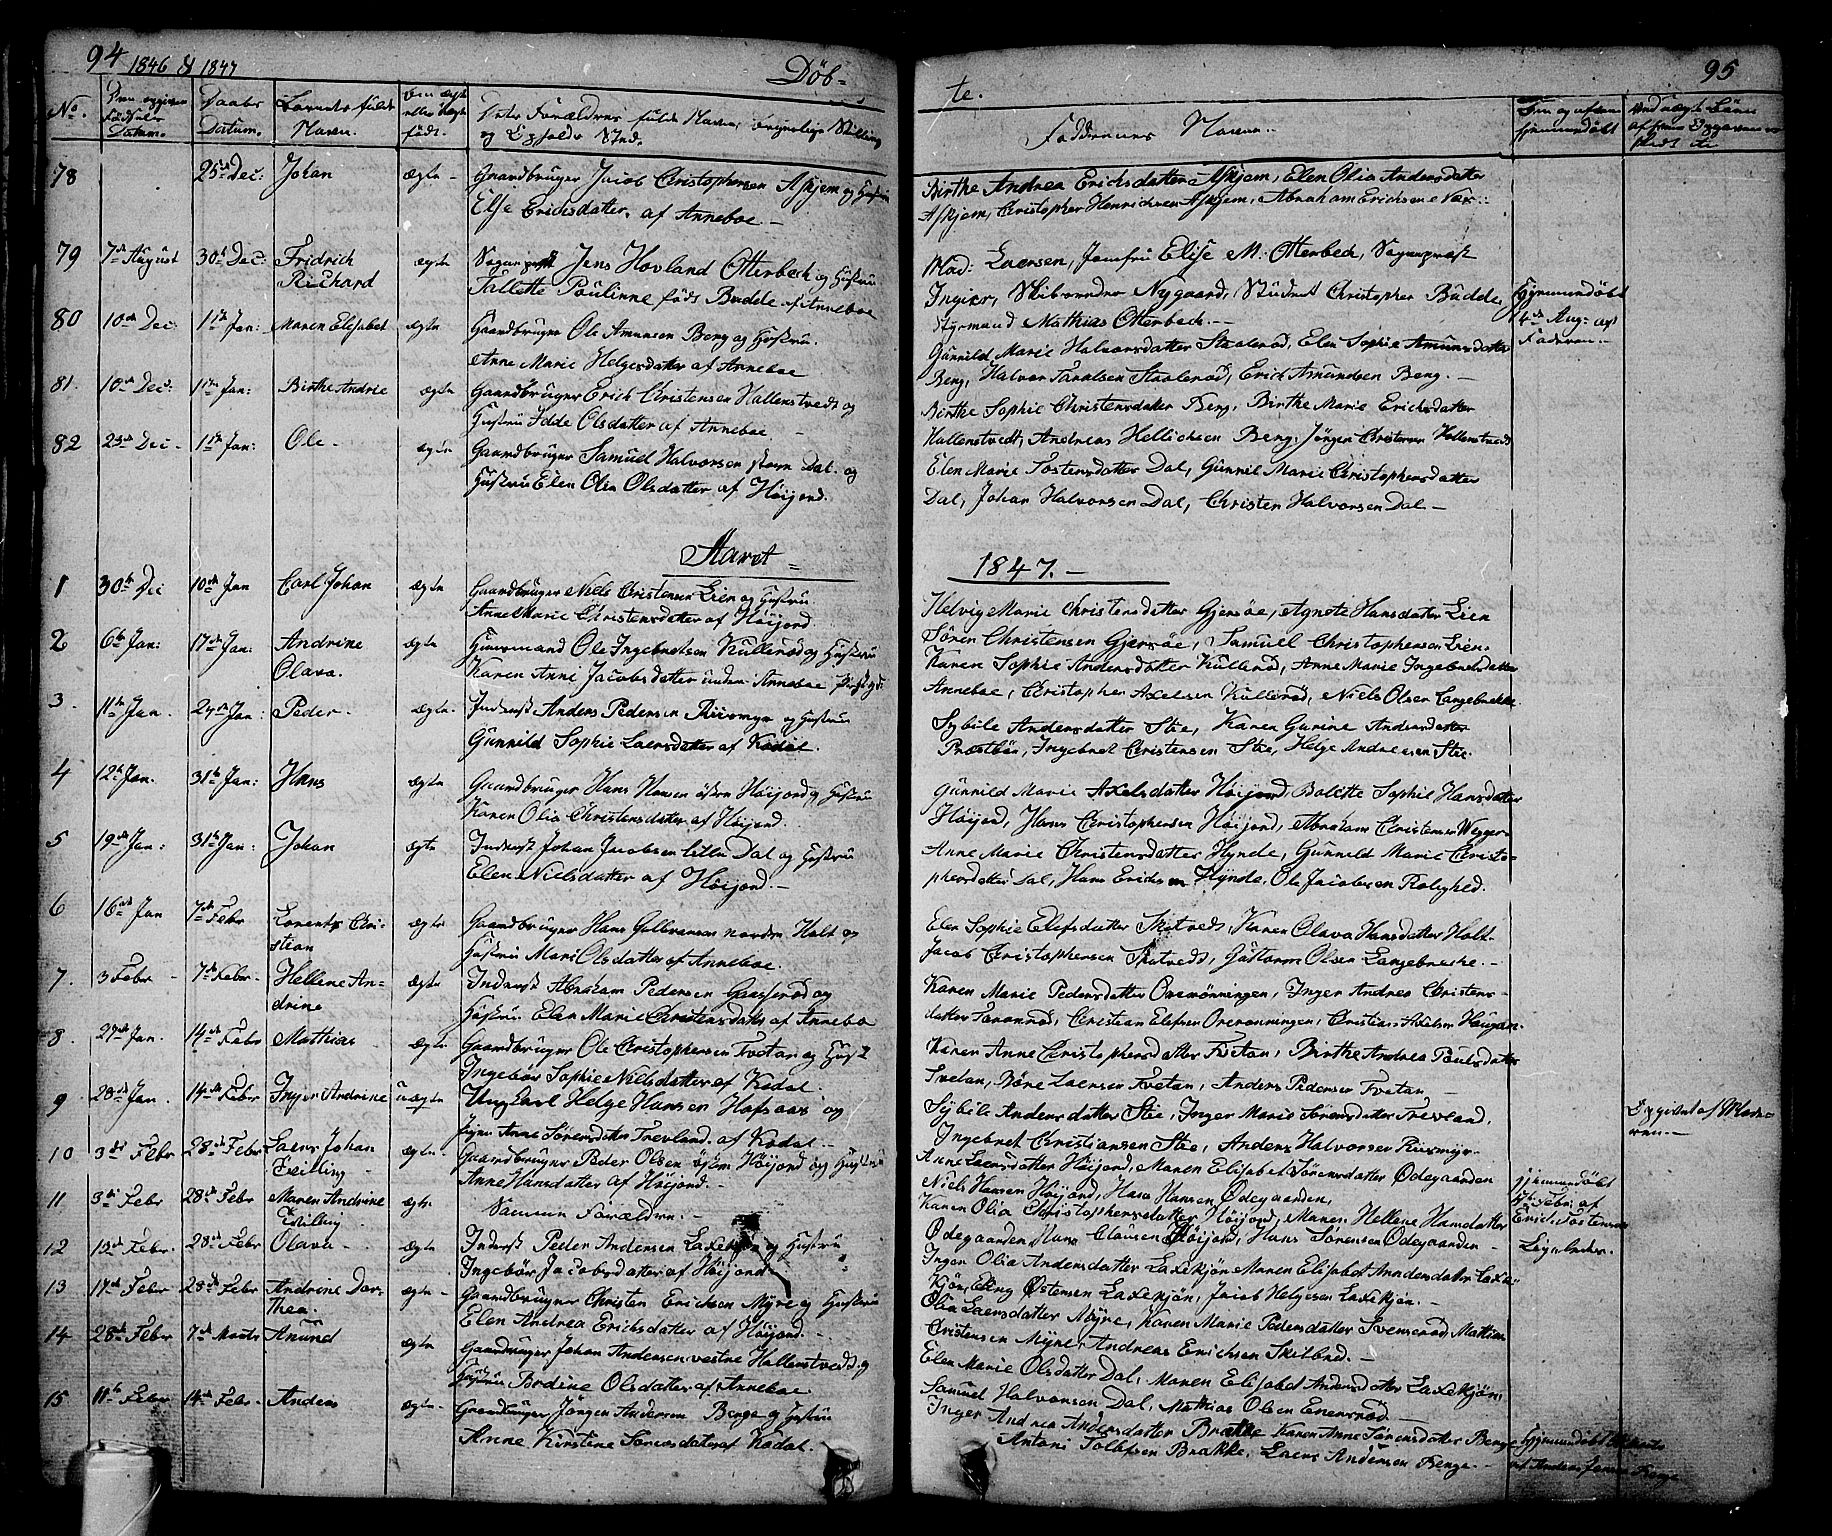 94 1846 & 1847
Døb-
No.
Den opgivne Fødsels Datum.
Daabs Datum.
Barnets fulde Navn.
Om ægte eller uægte født.
Dets Forældres fulde Navne, borgerlige Stilling
og Opholds Sted.
78 25de Dec: Johan ægte - Gaardbruger Jacob Christophersen Askjem og Hustru
Else Erichsdatter, af Anneboe -
79 7de August 30te Dec: Fridrich Richard ægte Sogneprest Jens Hovland Otterbech og Hustru
Tallette Paulinne født Budde af Anneboe
80 10de Dec: 1ste Jan: Maren Elisabet ægte Gaardbruger Ole Amunsen Berg og Hustru
Anne Marie Helgesdatter af Anneboe
81. 10de Dec: 1ste Jan: Birthe Andrie ægte Gaardbruger Erich Christensen Hallenstvedt og
Hustru Idde Olsdatter af Anneboe -
82 23de Dec - 1ste Jan: Ole - ægte Gaardbruger Samuel Halvorsen store Dal og
Hustru Elen Olia Olsdatter af Høijord.
Aaret
1 30te Dec 10de Jan Carl Johan ægte Gaardbruger Niels Christensen Lien og Hustru
Anne Marie Christensdatter af Høijord.
2 6te Jan: 17de Jan: Andrine Olava. ægte Huusmand Ole Ingebretsen Kullerød og Hustru
Karen Anni Jacobsdatter under Anneboe
3 11te Jan. 24de Jan: Peder - ægte - Inderst Anders Pedersen Ruismyr og Hustru
Gunnild Sophie Laersdatter af Kodal.
4 12te Jan. 31te Jan: Hans ægte Gaardbruger Hans Hansen østre Høijord og Hustru
Karen Olia Christensdatter af Høijord.
5 19de Jan: 31te Jan: Johan ægte Inderst Johan Jacobsen lille Dal og Hustru
Elen Nielsdatter af Høijord. -
6 16de Jan 7de Febr Lorents Christian ægte Gaardbruger Hans Gulbransen nordre Holt og
Hustru Mari Olsdatter af Anneboe.
7. 3 Febr - 7de Febr - Hellene Andrine ægte Inderst Abraham Pedersen Gaasserød og
Hustru Elen Marie Christensdatter af Anneboe
8. 27de Jan. 14de Febr Mathias ægte Gaardbruger Ole Christophersen Tvetan og Hust:
Ingebør Sophie Nielsdatter af Kodal.
9 28de Jan. 14de Febr Inger Andrine uægte Ungkarl Helge Hansen Hafsaas og
Pige Anne Sørensdatter Trevland. af Kodal -
10 3de Febr 28de Febr Laers Johan Tvilling ægte - Gaardbruger Peder Olsen østre Høijord og Hustru
Anne Hansdatter af Høijord. -
11 3de Febr 28de Febr Maren Andrine Tvilling ægte - Samme Forældre. -
12 12te Febr. 28de Febr Olava - ægte Inderst Peder Andersen Laxekjøn og Hustru
Ingebør Jacobsdatter af Høijord
13 17de Febr 28de Febr Andrine Dorthea. ægte - Gaardbruger Christen Erichsen Myre og Hustru
Elen Andrea Erichsdatter af Høijord. -
14 28de Febr 7de Marts Anund ægte Gaardbruger Johan Andersen vestre Hallenstvedt og
Hustru Bordine Olsdatter af Anneboe
15 11te Febr 14de Febr - Anders ægte - Gaardbruger Jørgen Andersen Berge og Hustru
Anne Kirstine Sørensdatter af Kodal.
te.
95
Faddernes Navne.
Birthe Andrea Erichsdatter Askjem, Elen Olia Andersdatter
Askjem, Christopher Henrichsen Askjem, Abraham Erichsen Næs.
Mad: Laersen, Jomfru Elise M. Otterbech, Sogneprest
Ingier, Skibsreder Nygaard, Student Christopher Budde,
Styrmand Mathias Otterbech. -
Hjemmedøbt 14de Aug: af Faderen. -
Gunnild Marie Halvorsdatter Staalerød, Elen Sophie Amundsdatter
Berg, Halvor Paulsen Staalerød, Erich Amundsen Berg. -
Birthe Sophie Christensdatter Berg, Birthe Marie Erichsdatter
Hallenstvedt, Andreas Hellichsen Berg, Jørgen Christensen Hallenstvedt
Elen Marie Tostensdatter Dal, Gunnil Marie Christophersdatter
Dal, Johan Halvorsen Dal, Christen Halvorsen Dal -
1847. -
Helvig Marie Christensdatter Gjersøe, Agnete Hansdatter Lien
Søren Christensen Gjersøe, Samuel Christophersen Lien.
Karen Sophie Andersdatter Kullerød, Anne Marie Ingebretsdatter
Anneboe, Christopher Axelsen Kullerød, Niels Olsen Langebrekke
Sybile Andersdatter Stie, Karen Gurine Andersdatter
Præstbøe, Ingebret Christensen Stie, Helge Andersen Stie.
Gunnild Marie Axelsdatter Høijord, Bolette Sophie Hansdatter
Høijord, Hans Christophersen Høijord, Abraham Christensen Wegger-
Anne Marie Christensdatter Hynde, Gunnild Marie Christo-
phersdatter Dal, Hans Erichsen Hynde, Ole Jacobsen Rolighed.
Elen Sophie Elefsdatter Skatvedt, Karen Olava Hansdatter Holt-
Jacob Christophersen Skatvedt, Guttorm Olsen Langebrecke. -
Karen Marie Pedersdatter Overønningen, Inger Andrea Christens-
datter, Christian Elefsen Overønningen, Christian Axelsen Haugan.
Karen Anne Christophersdatter Tvetan, Birthe Andrea Poulsdatter
Tvetan, Børe Laersen Tvetan, Anders Pedersen Tvetan -
Sybile Andersdatter Stie, Inger Marie Sørensdatter Trevland,
Ingebret Christiansen Stie, Anders Halvorsen Ruismyr.
Opgivet af Moderen. -
Anne Laersdatter Høijord, Maren Elisabet Sørensdatter Ødegaarden
Niels Hansen Høijord, Hans Hansen Ødegaarden,
Karen Olia Christophersdatter Høijord, Maren Hellene Hansdatter
Ødegaarden Hans Clausen Høijord, Hans Sørensen Ødegaarden -
Hjemmedøbt Febr: af Erich Tostensen
Inger Olia Andersdatter Laxekjøn Maren Elisabet Amundsdatter Laxe-
kjøn, Eling Østensen Laxekjøn, Jacob Helgesen Laxekjøn. -
Olia Laersdatter Myre, Karen Marie Pedersdatter Svenserød, Mathias
Christensen Myre, Andreas Erichsen Skilbred. -
Elen Marie Olsdatter Dal, Maren Elisabet Andersdatter Laxekjøn,
Samuel Halvorsen Dal, Mathias Olsen Enersrød. -
Inger Andrea Andersdatter Brække Karen Anne Sørensdatter Berge
Antoni Tollefsen Brække, Laers Andersen Berge -
Hjemmedøbt af Anders Jensen Berge